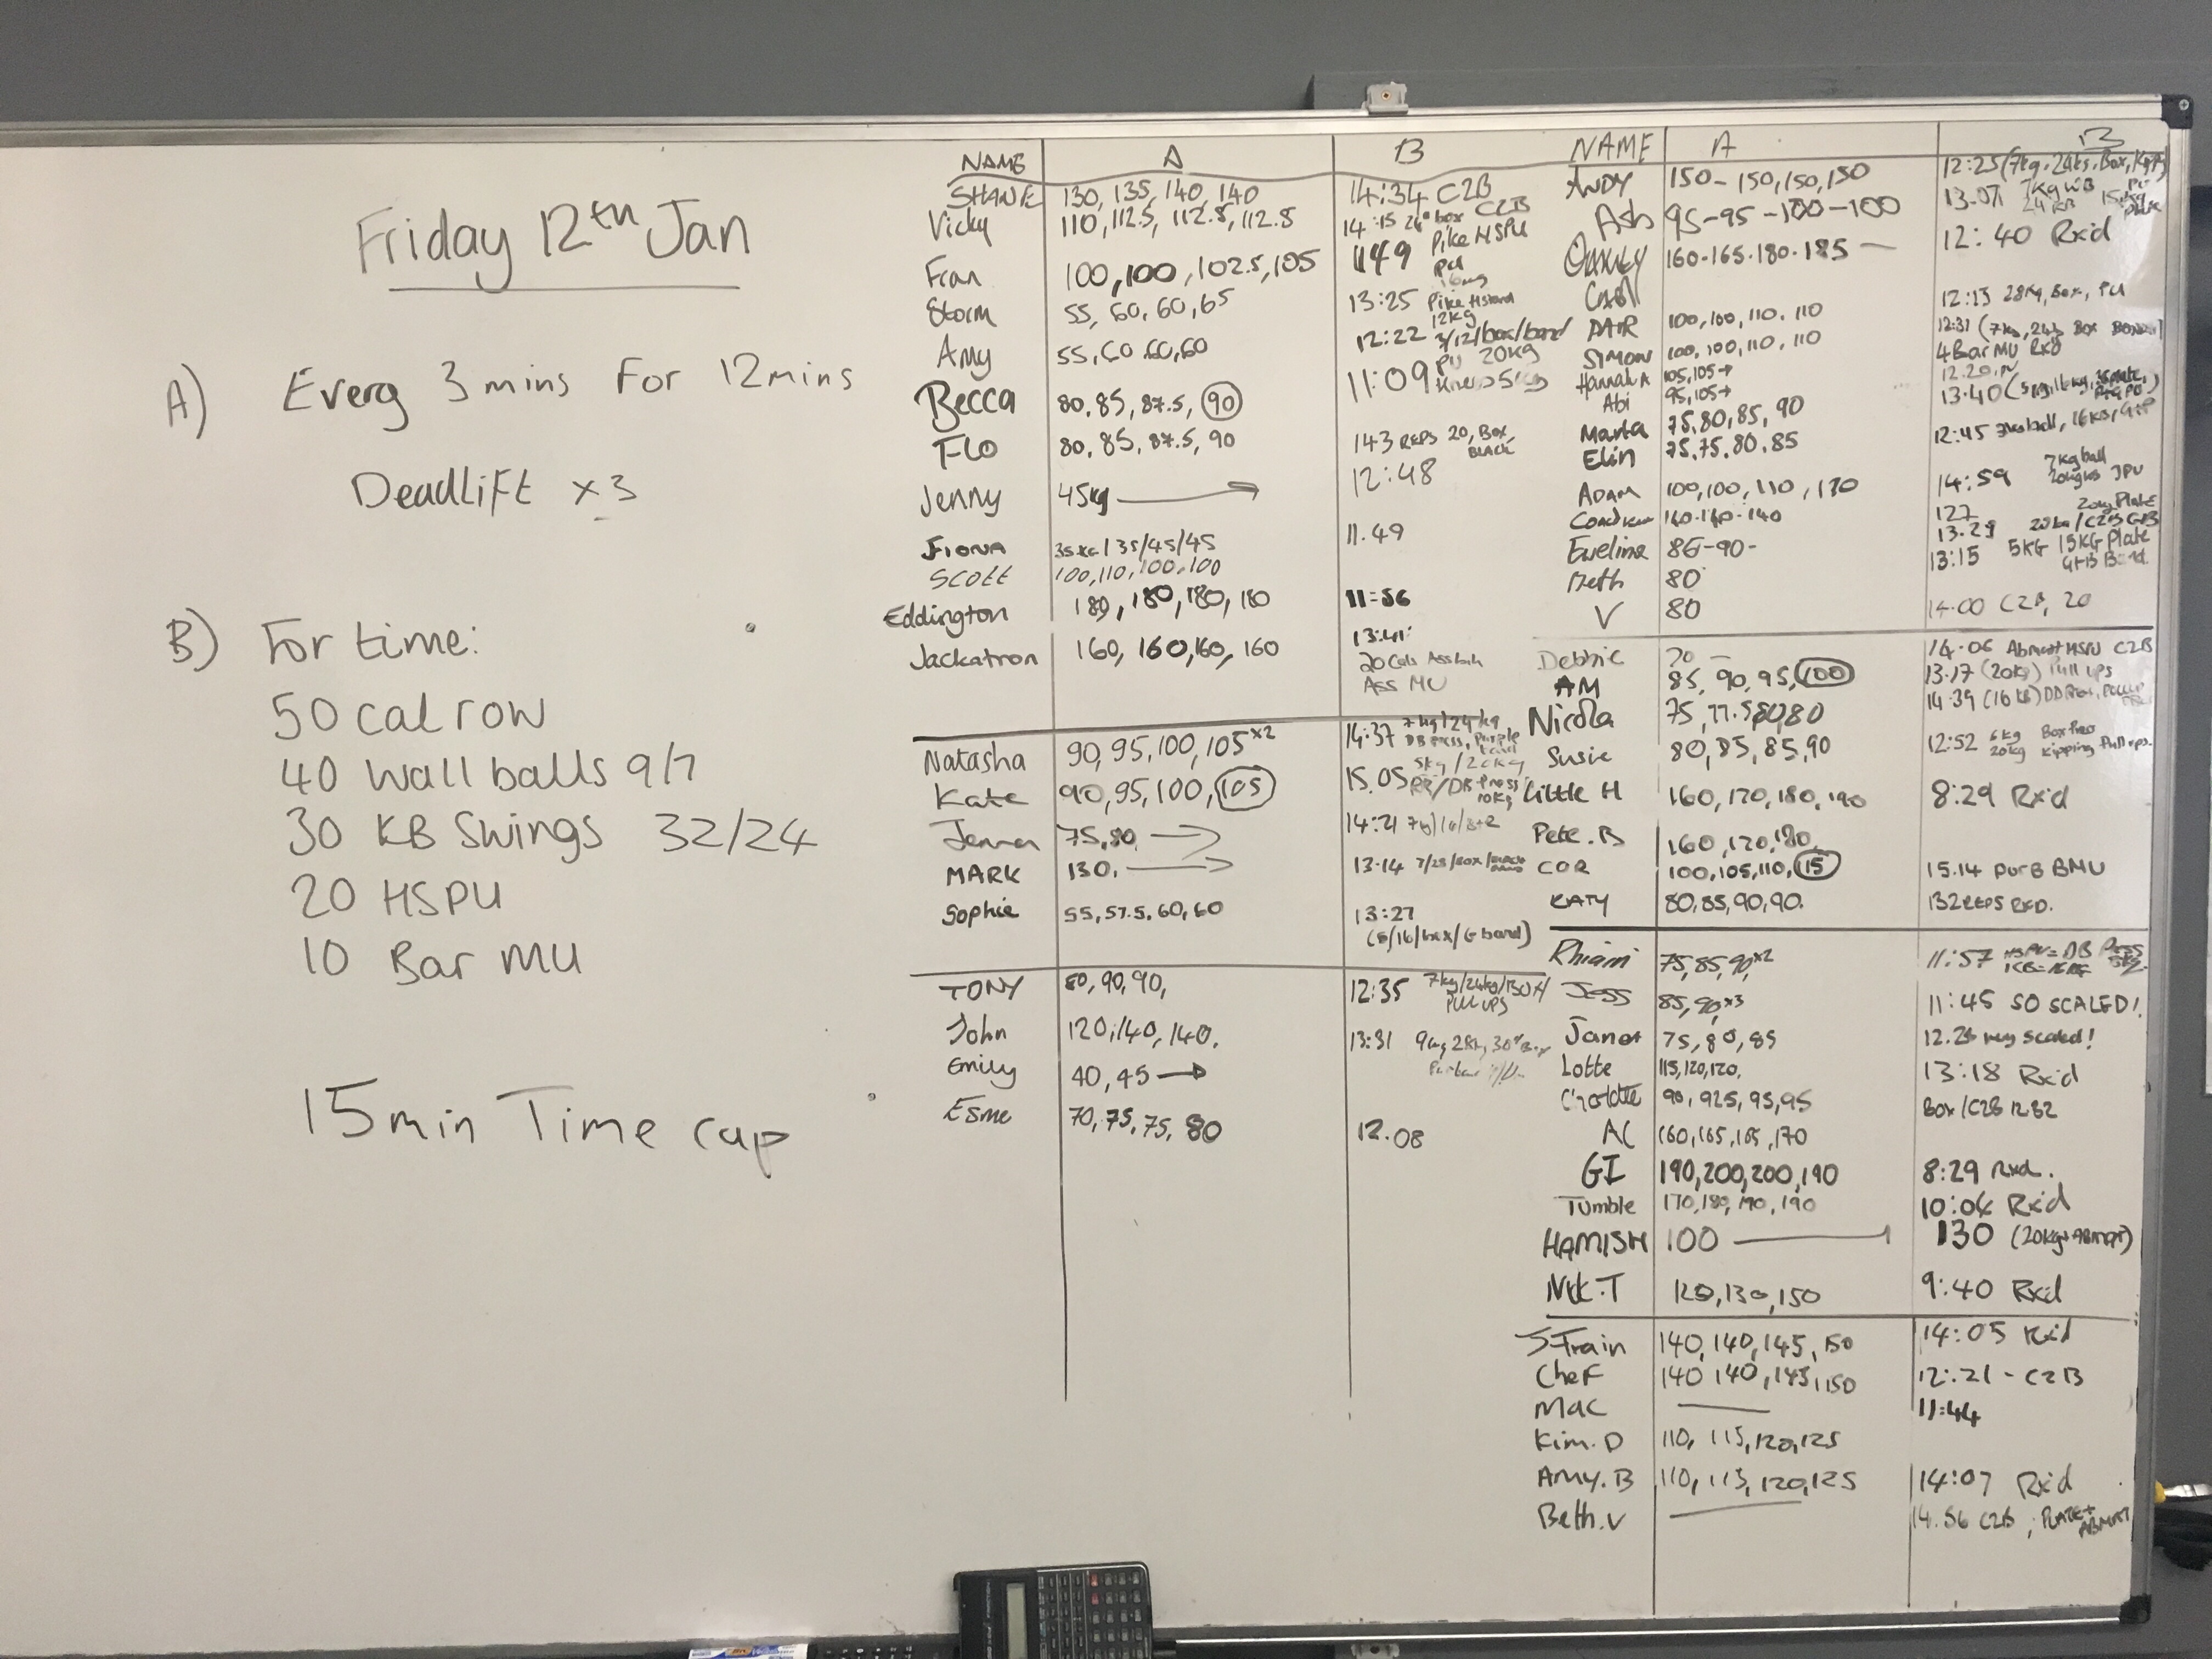 Friday 12th Jan
A) Every 3 mins for 12mins
Deadlift x3
B) For time:
50 cal row
40 Wall balls 9/7
30 KB Swings 32/24
20 HSPU
10 Bar MU
15min Time cap
NAME A B
SHANE 130, 135, 140, 140 14:34 C2B
Vicky 110, 112.5, 112.5, 112.5 14:15 box C2B
Fran 100, 100, 102.5, 105 149 Pike HSPU PU
Storm 55, 60, 60, 65 13:25 Pike 12kg
Amy 55, 60, 60, 60 12:22 3/12/box/band
Becca 80, 85, 87.5, 90 11:09 PU 20kg
Flo 80, 85, 87.5, 90 143 REPS 20, Box, BLACK
Jenny 45kg → 12:48
FIONA 35KG/35/45/45 11.49
SCOTT 100, 110, 100, 100
Eddington 180, 180, 180, 180 11:56
Jackatron 160, 160, 160, 160 13:41
20 Cals
Ass MU
Natasha 90, 95, 100, 105 x2 14:37 7kg/24kg DB press, Purple
Kate 90, 95, 100, 105 15.05 5kg/20kg RR/DB Press 10kg
Jenna 75, 80 → 14:21
MARK 130, → 13.14 7/28/BOX/
Sophie 55, 57.5, 60, 60 13:27
(5/16/box/G band)
TONY 80, 90, 90, 12:35 7kg/24kg/BOX/ PULL UPS
John 120, 140, 140. 13:31
Emily 40, 45 →
Esme 70, 75, 75, 80 12.08
NAME A B
ANDY 150 - 150, 150, 150 12:25 (7kg, 24kg, Box,
Ash 95 - 95 - 100 - 100 13.07
160 - 165 - 180 - 185 — 12:40 Rx'd
12:13 28kg, Box, PU
100, 100, 110, 110
SIMON 100, 100, 110, 110
4 Bar MU
Hannah A 105, 105 →
Abi 95, 105 → 13:40
Marta 75, 80, 85, 90 12:45
Elin 75, 75, 80, 85
Adam 100, 100, 110, 130 14:59 7kg ball
140 - 140 - 140 127 20kg Plate
Eveline 86 - 90 - 13.29
Beth 80 13:15 5KG 15KG Plate
V 80 14.00 C2B, 20
Debbie 70 — 14.06 Abmat HSPU C2B
AM 85, 90, 95, 100 13.17 (20kg) Pull ups
Nicola 75, 77.5, 80, 80 14:39 (16 KB)
Susie 80, 85, 85, 90 12:52 6kg 20kg Box Press Kipping Pull ups
Little H 160, 170, 180, 190 8:29 Rx'd
Pete.B 160, 170, 180
COR 100, 105, 110, 115 15.14 BMU
KATY 80, 85, 90, 90. 132 REPS RXD.
Rhian 75, 85, 90 x2 11:57 HSPU = DB Press
Jess 85, 90 x3 11:45 SO SCALED!
Janet 75, 80, 85 12.26 very scaled!
Lotte 115, 120, 120, 13:18 Rx'd
Charlotte 90, 92.5, 95, 95 Box/C2B
AC 160, 165, 165, 170
GI 190, 200, 200, 190 8:29 Rxd.
Tumble 170, 180, 190, 190 10:04 Rx'd
HAMISH 100 → 130 (20kg + ABMAT)
Nick.T 120, 130, 150 9:40 Rx'd
J-Train 140, 140, 145, 150 14:05 Rx'd
Chef 140 140, 145, 150 12:21 - C2B
Mac — 11:44
Kim.D 110, 115, 120, 125
Amy.B 110, 115, 120, 125 14:07 Rx'd
Beth.V — 14.56 C2B, PLATE + ABMAT